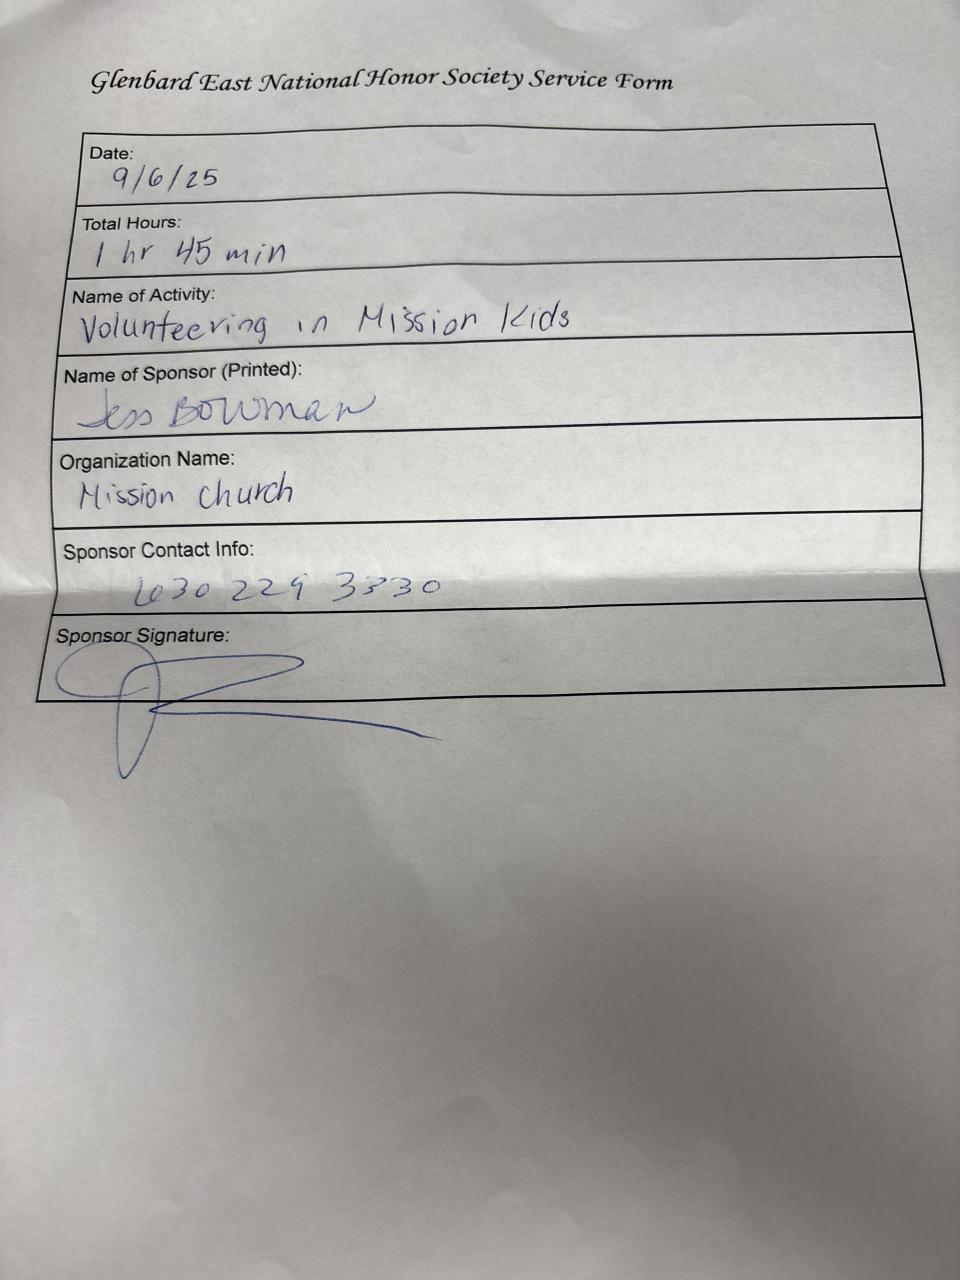 Glenbard East National Honor Society Service Form
Date:
9/6/25
Total Hours:
1 hr 45 min
Name of Activity:
Volunteering in Mission Kids
Name of Sponsor (Printed):
Jess Bowman
Organization Name:
Mission Church
Sponsor Contact Info:
630 229 3330
Sponsor Signature: